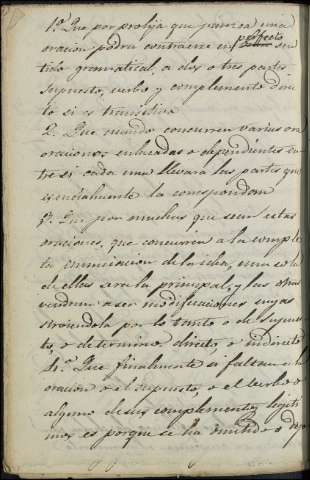 1.º Que por prolija que parezca una
oracion podrá contraerse en perfecto sen-
tido gramatical, a dos o tres partes
supuesto, verbo y complemento direc-
to si es transitiva
2. Que cuando concurren varias
oraciones enlazadas o dependientes en-
tre si cada una llevará las partes que
esencialmente la correspondan
3.º Que por muchas que sean estas
oraciones, que concurren a la comple-
ta enunciacion de la idea, una sola
de ellas será la principal, y las otras
vendran a ser modificaciones suyas
sirviendola por lo tanto o de supues-
to, o de termino directo, o indirecto
4.º Que finalmente si faltase en la
oracion o el supuesto o el verbo o
alguno de sus complementos legiti-
mos es porque se ha omitido o